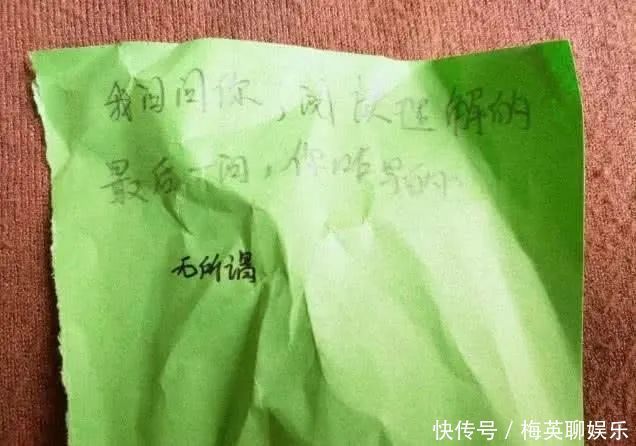 我问问你，阅读理解的
最后一问，你咋写的
无所谓
快传号／梅英聊娱乐